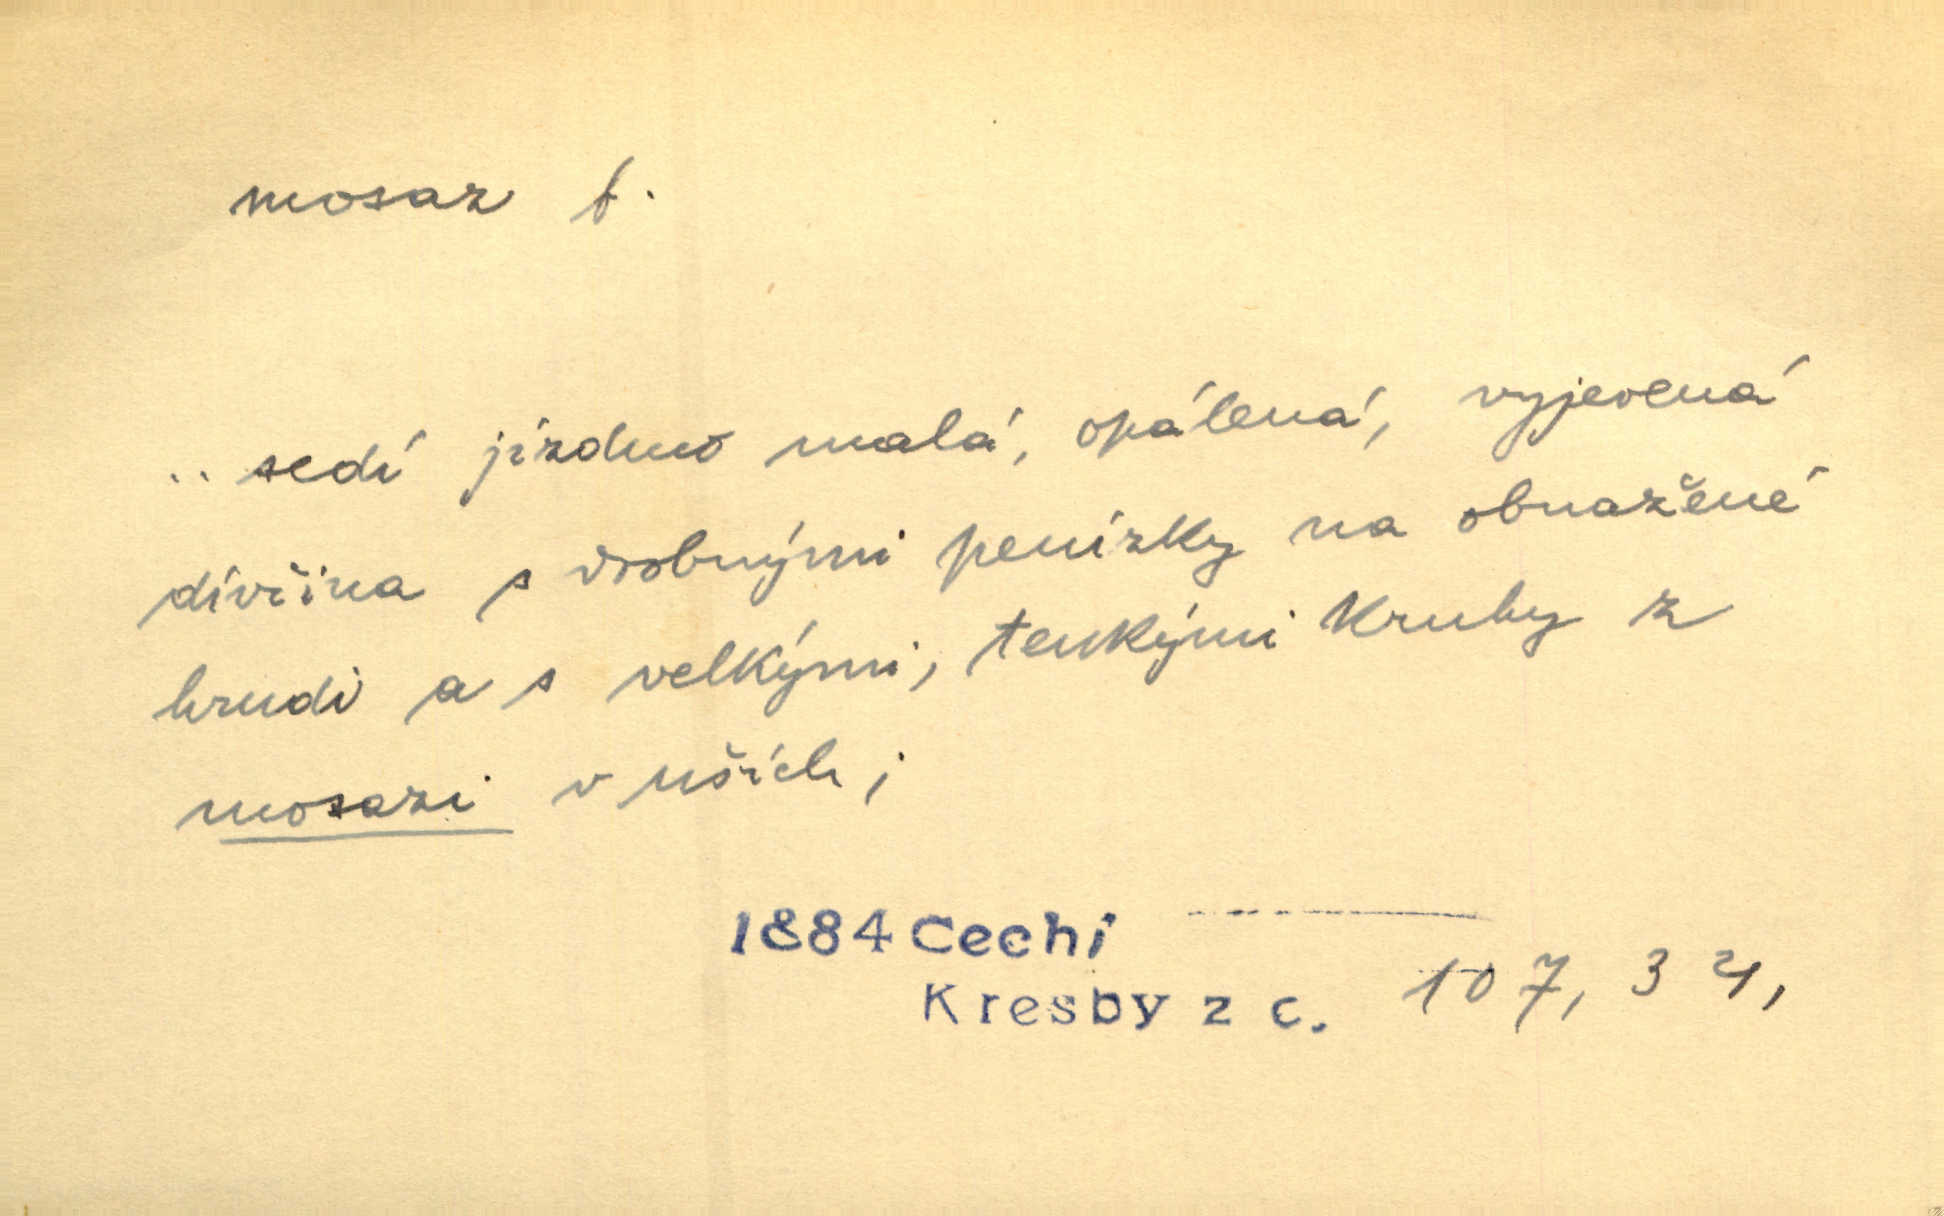 mosaz f.
.. sedí jízdmo malá, opálená, vyjevená
divčina s drobnými penízky na obnažené
hrudi a s velkými, tenkými kruhy z
mosazi v uších;
1884 Cechi
Kresby z c. 107, 34,